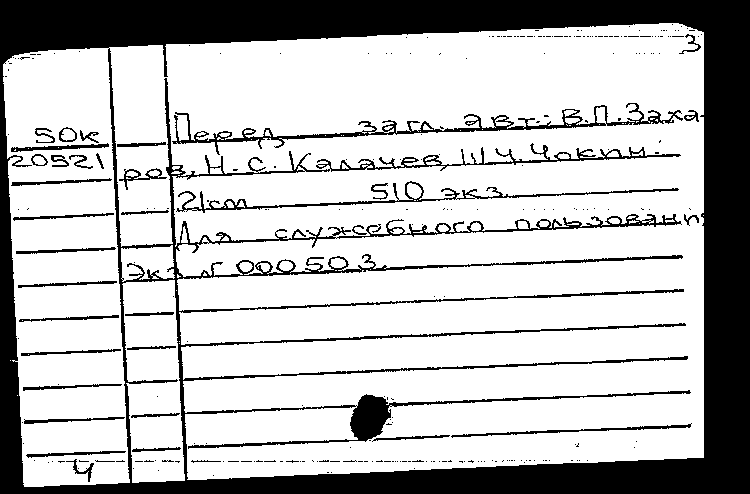 3
50к Перед загл. авт.: В.П. Заха-
20521 ров, Н.С. Калачев, Ш.Ч. Чокин.
21cm 510 экз.
Для служебного пользования
Экз № 000503.
4